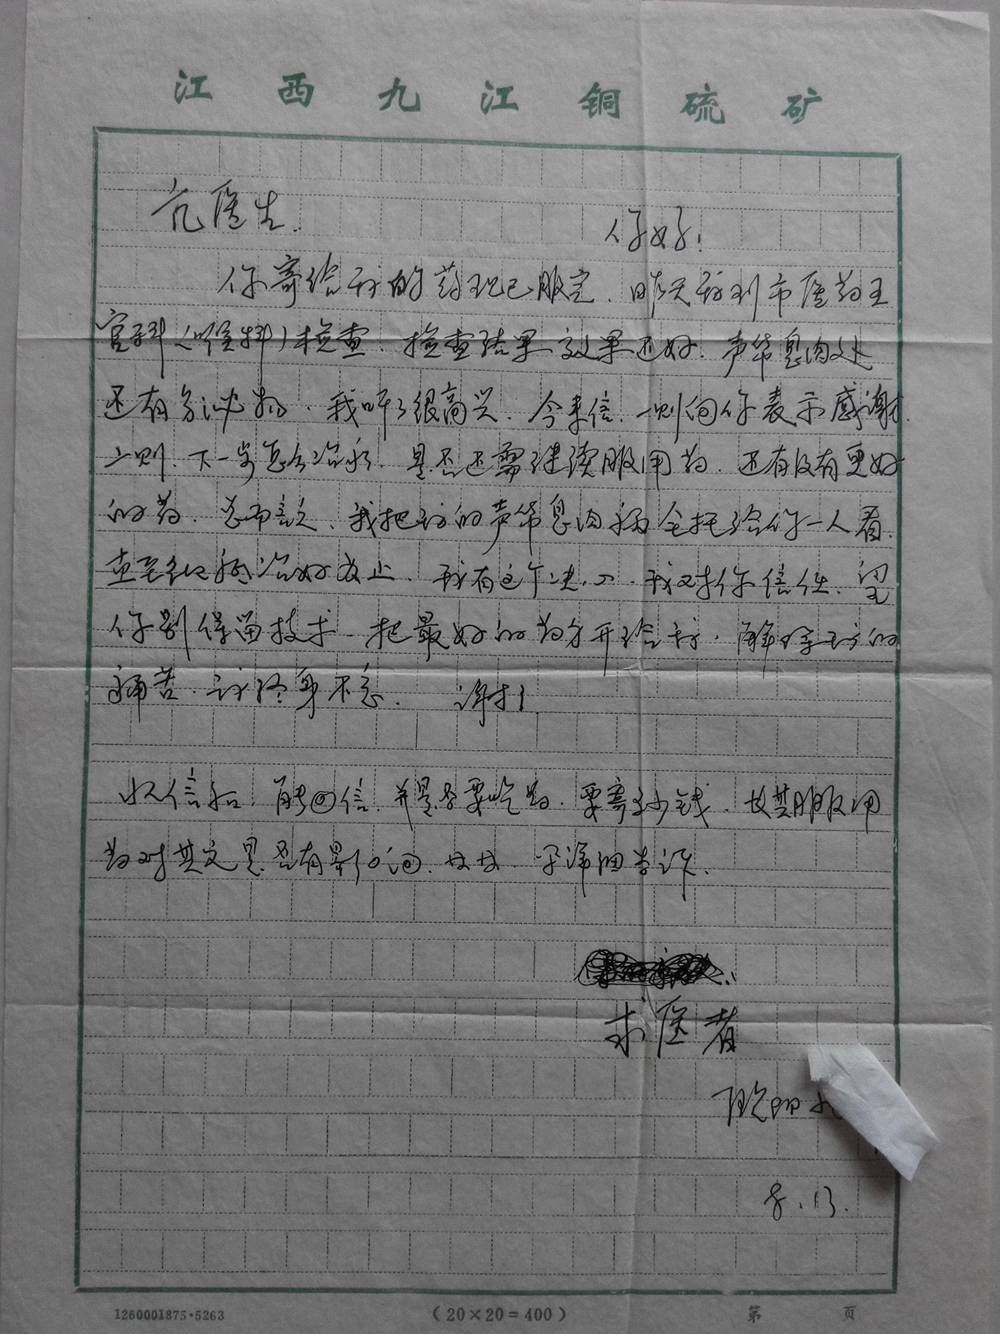 江西九江铜硫矿
范医生. 你好!
你寄给我的药现已服完.昨天我到市医药五
官科(喉科)检查.检查结果效果还好.声带息肉处
还有分泌物.我听了很高兴.今来信.一则向你表示感谢.
二则.下一步怎么治疗.是否还需继续服用药.还有没有更好
的药.总而言之.我把我的声带息肉病全托给你一人看.
直至把病治好为止.我有这个决心.我对你信任.望
你别保留技术.把最好的药方开给我.解除我的
痛苦.我终身不忘. 谢!
收信后.请回信.并是否要吃药.要寄多少钱.其服用
药对其它是否有影响.予详细告诉.
求医者
欧阳
8.13.
1260001875·5263
(20×20=400)
第 页